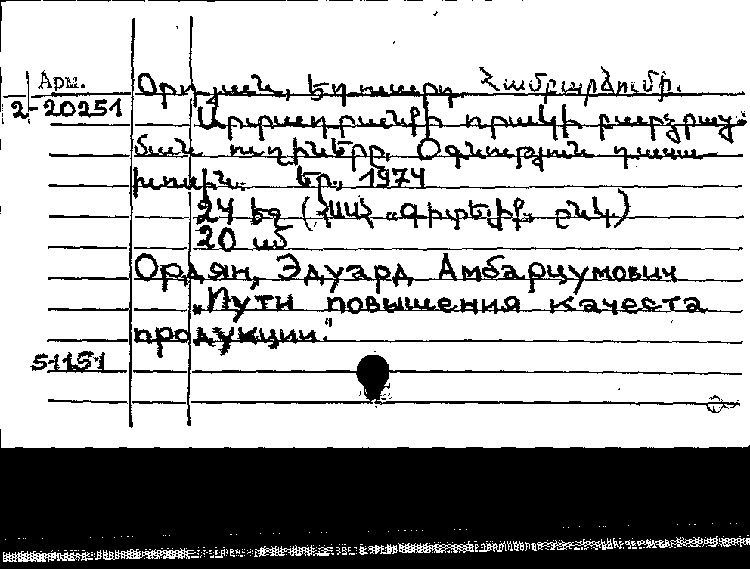 Арм.
Օրդյան, Էդուարդ Համբարձումի.
2-20251
Արտադրանքի որակի բարձրաց-
ման ուղիները. Օգնություն դասա
խոսին. Եր., 1974
24 եզ (ՀՍՍՀ «Գիտելիք» ընկ.)
20 սմ
Ордян, Эдуард Амбарцумович
„Пути повышения качеста
продукции."
51151